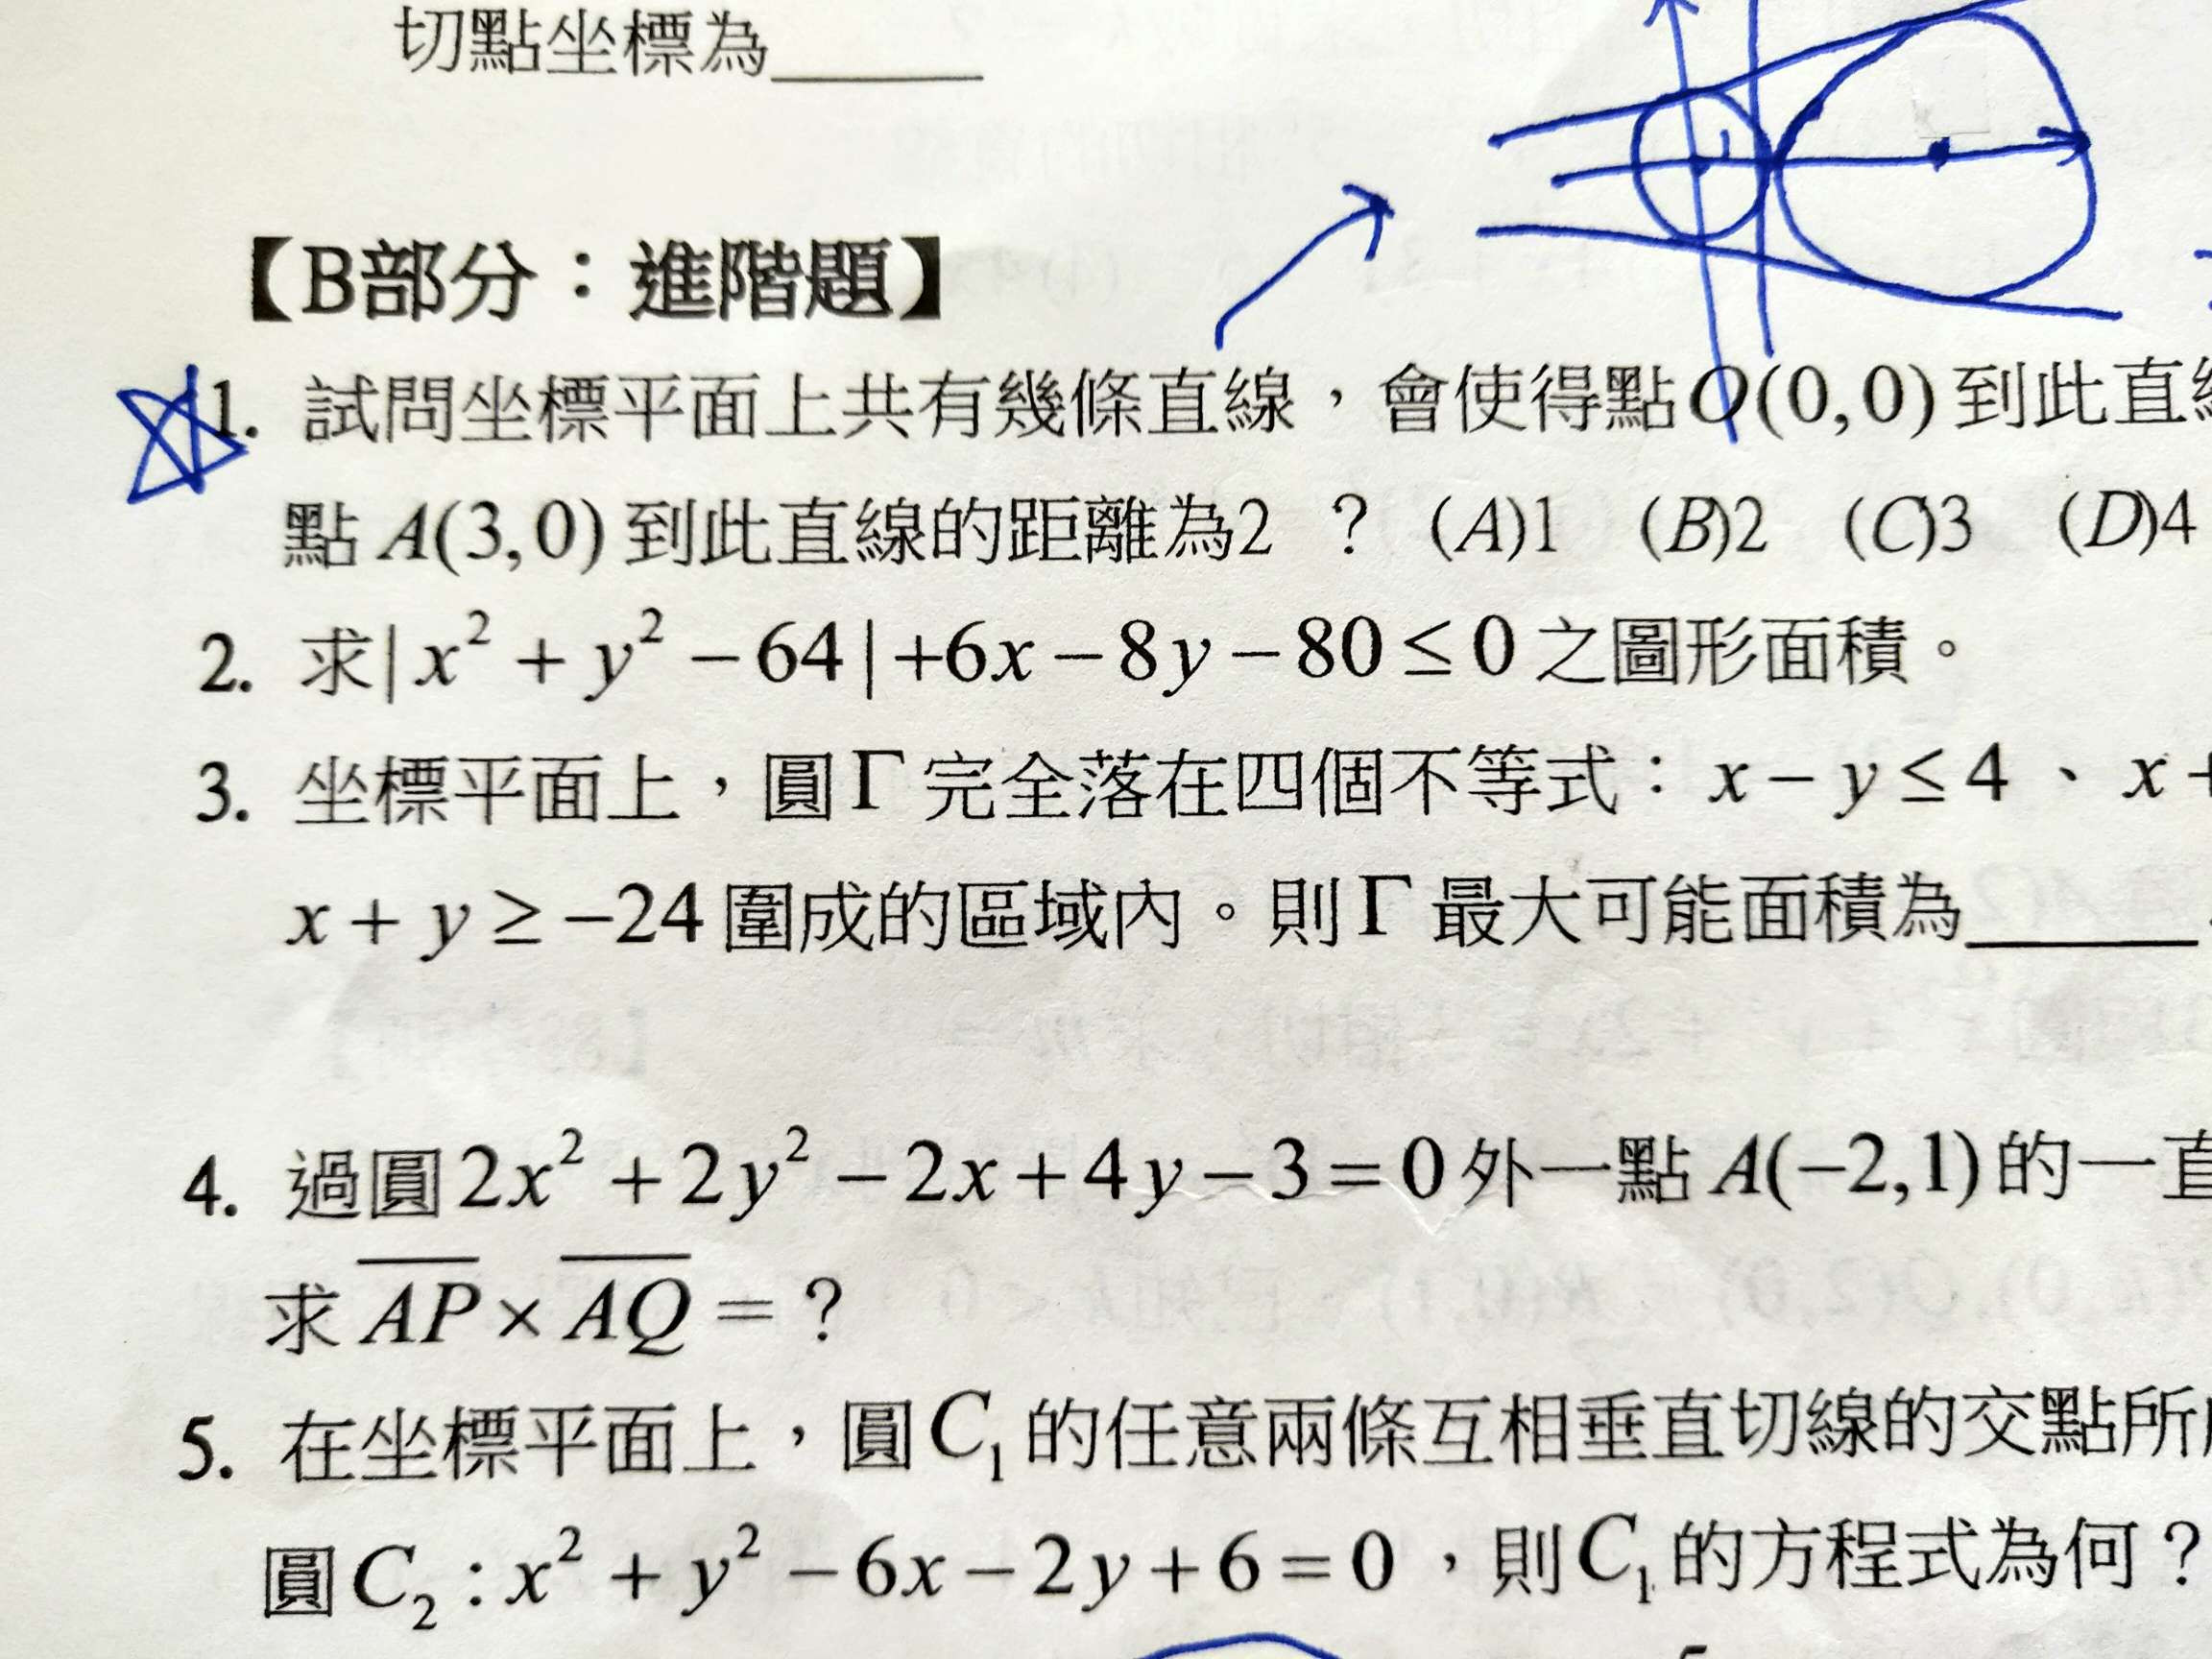 切點坐標為______
【B部分：進階題】
1. 試問坐標平面上共有幾條直線，會使得點O(0,0)到此直
點A(3,0)到此直線的距離為2 ? (A)1 (B)2 (C)3 (D)4
2. 求|x²+y²−64|+6x−8y−80≤0之圖形面積。
3. 坐標平面上，圓Γ完全落在四個不等式：x−y≤4、x+
x+y≥−24圍成的區域內。則Γ最大可能面積為______
4. 過圓2x²+2y²−2x+4y−3=0外一點A(−2,1)的一直
求 A̅P̅×A̅Q̅=?
5. 在坐標平面上，圓C₁的任意兩條互相垂直切線的交點所
圓C₂:x²+y²−6x−2y+6=0，則C₁的方程式為何？